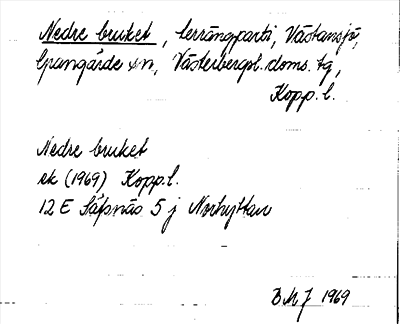 Nedre bruket, terrängparti, Västansjö,
Grangärde sn, Västerbergsl. doms. tg,
Kopp. l.
Nedre bruket
ek (1969) Kopp. l.
12 E Säfsnäs 5 j Norhyttan
BMJ 1969